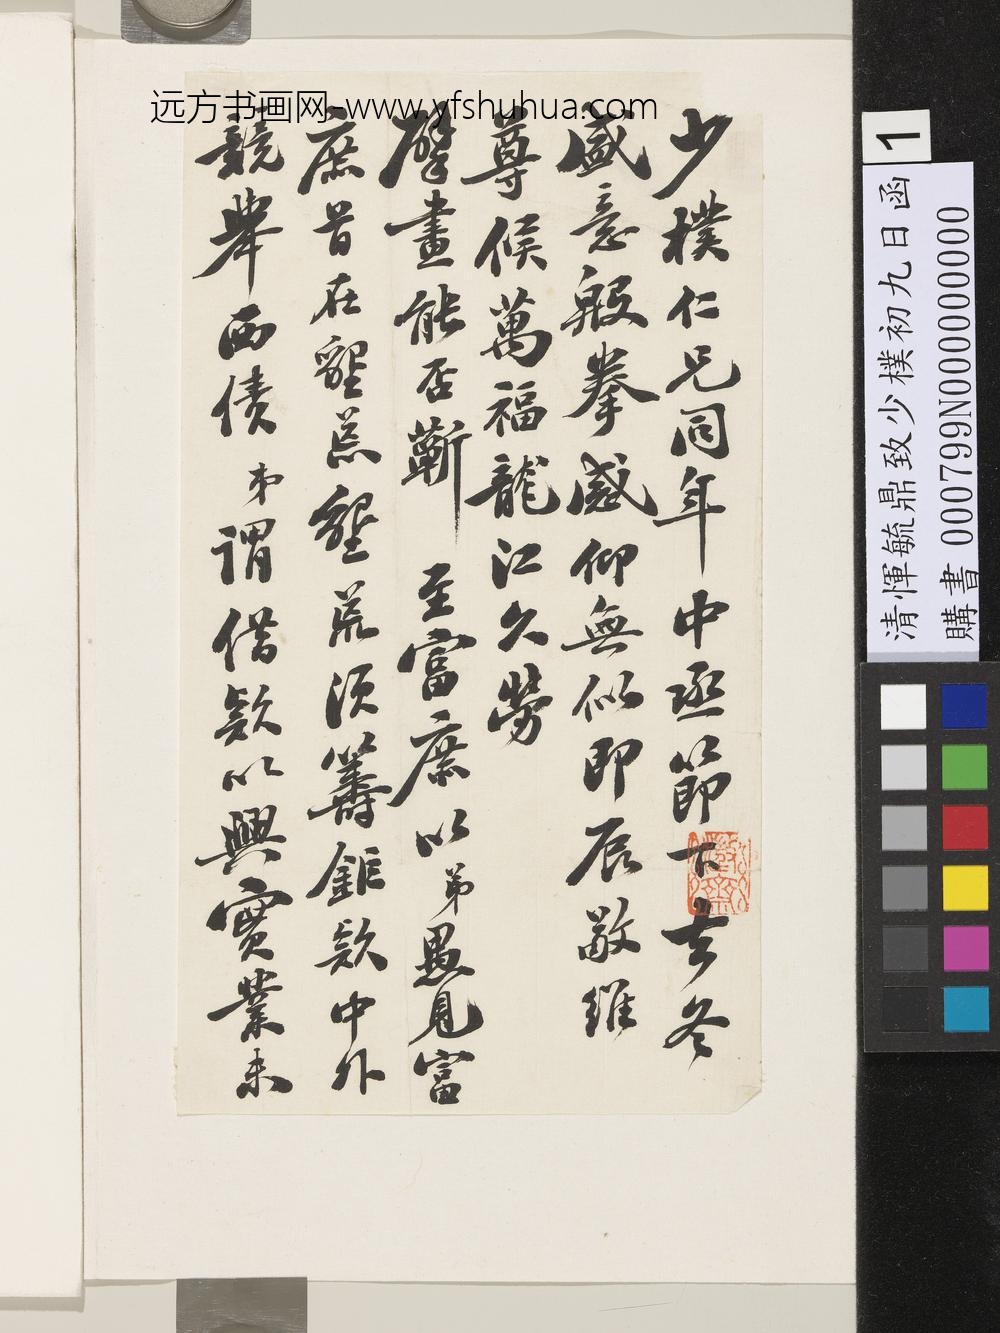 远方书画网-www.yfshuhua.com
少樸仁兄同年中丞節下去冬
盛意殷拳感仰無似即辰敬維
尊候萬福龍江久勞
擘畫能否蘄至富庶以弟愚見富
庶首在墾荒墾荒須籌鉅款中外
競舉西債弟謂借款以興實業未
1
清惲毓鼎致少樸初九日函
購書 000799N000000000